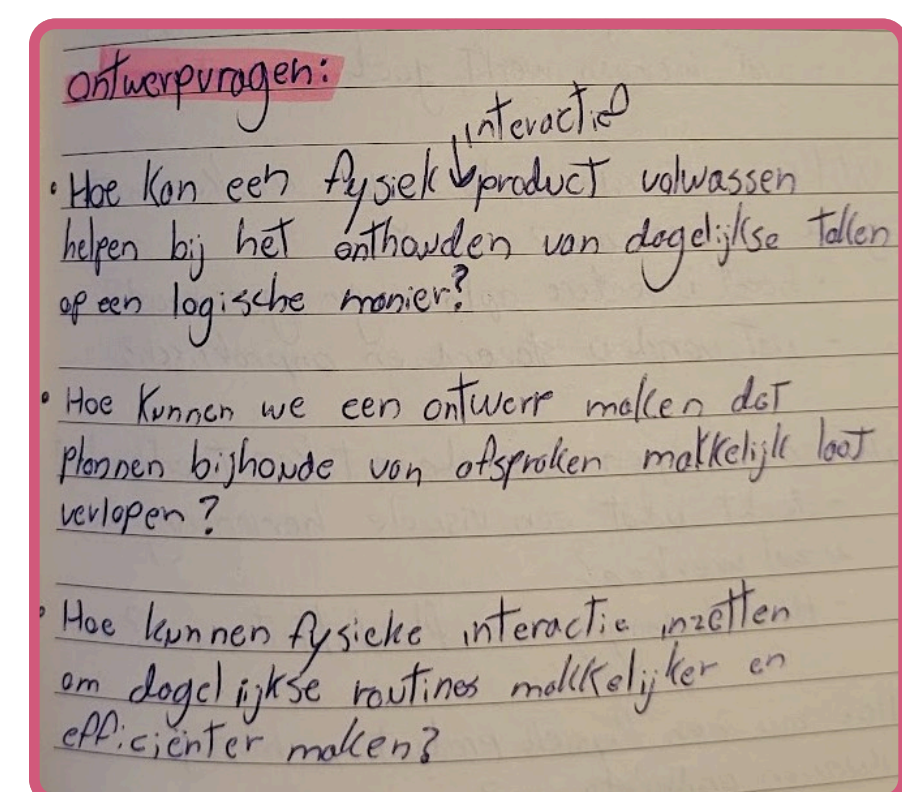 ontwerpvragen:
interactie
• Hoe kan een fysiek product volwassen
helpen bij het onthouden van dagelijkse taken
op een logische manier?
• Hoe kunnen we een ontwerp maken dat
plannen bijhoude van afspraken makkelijk laat
verlopen?
• Hoe kunnen fysieke interactie inzetten
om dagelijkse routines makkelijker en
efficiënter maken?